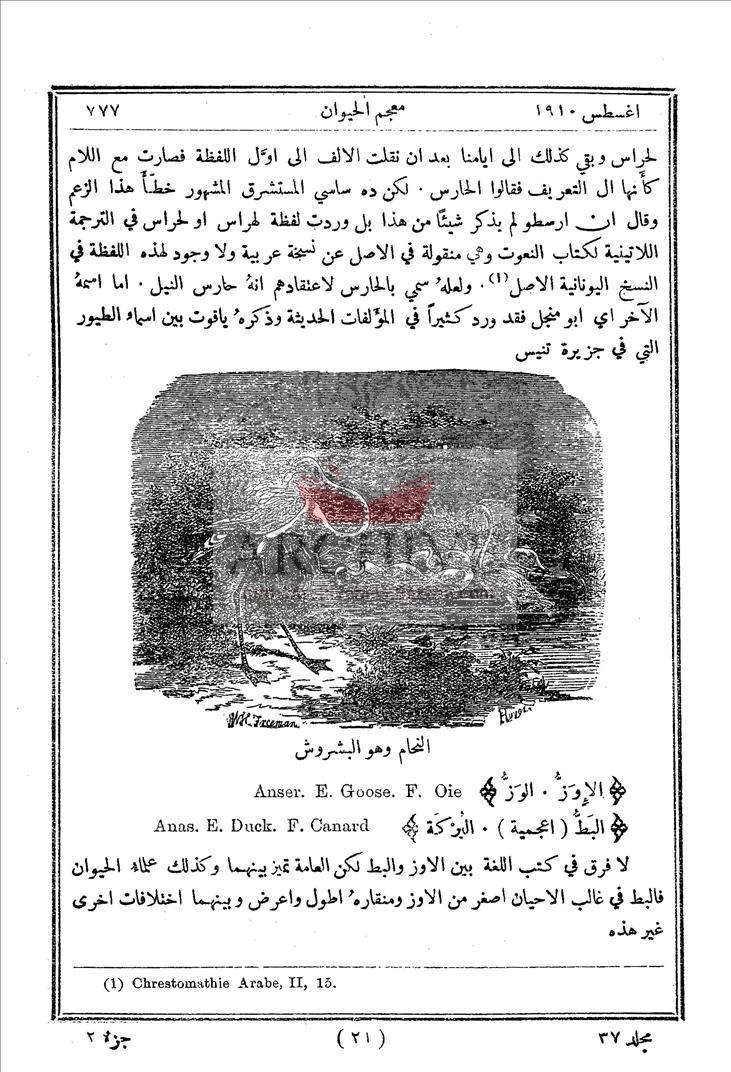 اغسطس ١٩١٠ معجم الحيوان ٧٧٧
لحراس وبقي كذلك الى ايامنا بعد ان نقلت الالف الى اوَّل اللفظة فصارت مع اللام
كأَنها ال التعريف فقالوا الحارس . لكن ده ساسي المستشرق المشهور خطَّأَ هذا الزعم
وقال ان ارسطو لم يذكر شيئًا من هذا بل وردت لفظة لهراس او لحراس في الترجمة
اللاتينية لكتاب النعوت وهي منقولة في الاصل عن نسخة عربية ولا وجود لهذه اللفظة في
النسخ اليونانية الاصل(١) . ولعلهُ سمي بالحارس لاعتقادهم انهُ حارس النيل . اما اسمهُ
الآخر اي ابو منجل فقد ورد كثيراً في المؤلفات الحديثة وذكرهُ ياقوت بين اسماء الطيور
التي في جزيرة تنيس
ARCHIVE
W.H. Freeman
النحام وهو البشروش
﴿ الإِوَزُّ . الوَزُّ ﴾ Anser. E. Goose. F. Oie
﴿ البَطُّ ( اعجمية ) . البُرْكَة ﴾ Anas. E. Duck. F. Canard
لا فرق في كتب اللغة بين الاوز والبط لكن العامة تميز بينهما وكذلك علماء الحيوان
فالبط في غالب الاحيان اصغر من الاوز ومنقارهُ اطول واعرض وبينهما اختلافات اخرى
غير هذه
(1) Chrestomathie Arabe, II, 15.
مجلد ٣٧ (٢١) جزء ٢